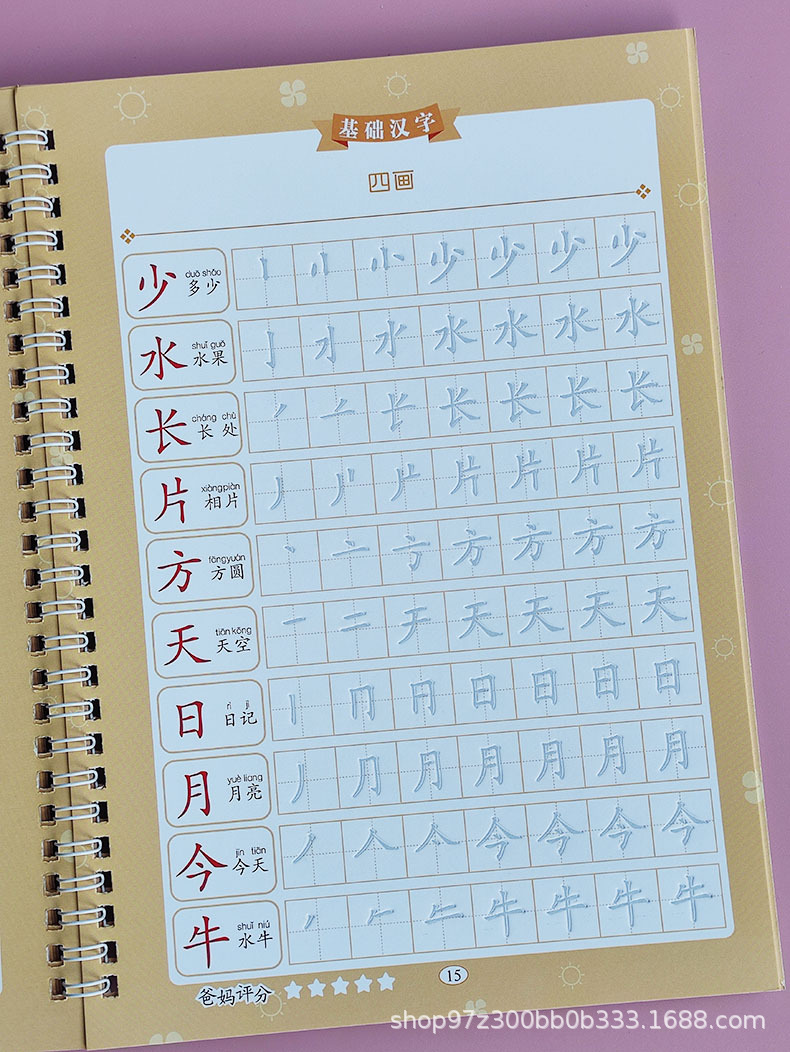 基础汉字
四画
少 duō shǎo 多少 少 少 少 少
水 shuǐ guǒ 水果 水 水 水 水 水
长 cháng chù 长处 长 长 长 长
片 xiàng piàn 相片 片 片 片 片
方 fāng yuán 方圆 方 方 方 方
天 tiān kōng 天空 天 天 天 天
日 rì jì 日记 日 日 日 日
月 yuè liang 月亮 月 月 月 月 月
今 jīn tiān 今天 今 今 今 今
牛 shuǐ niú 水牛 牛 牛 牛 牛
爸妈评分
15
shop97z300bb0b333.1688.com